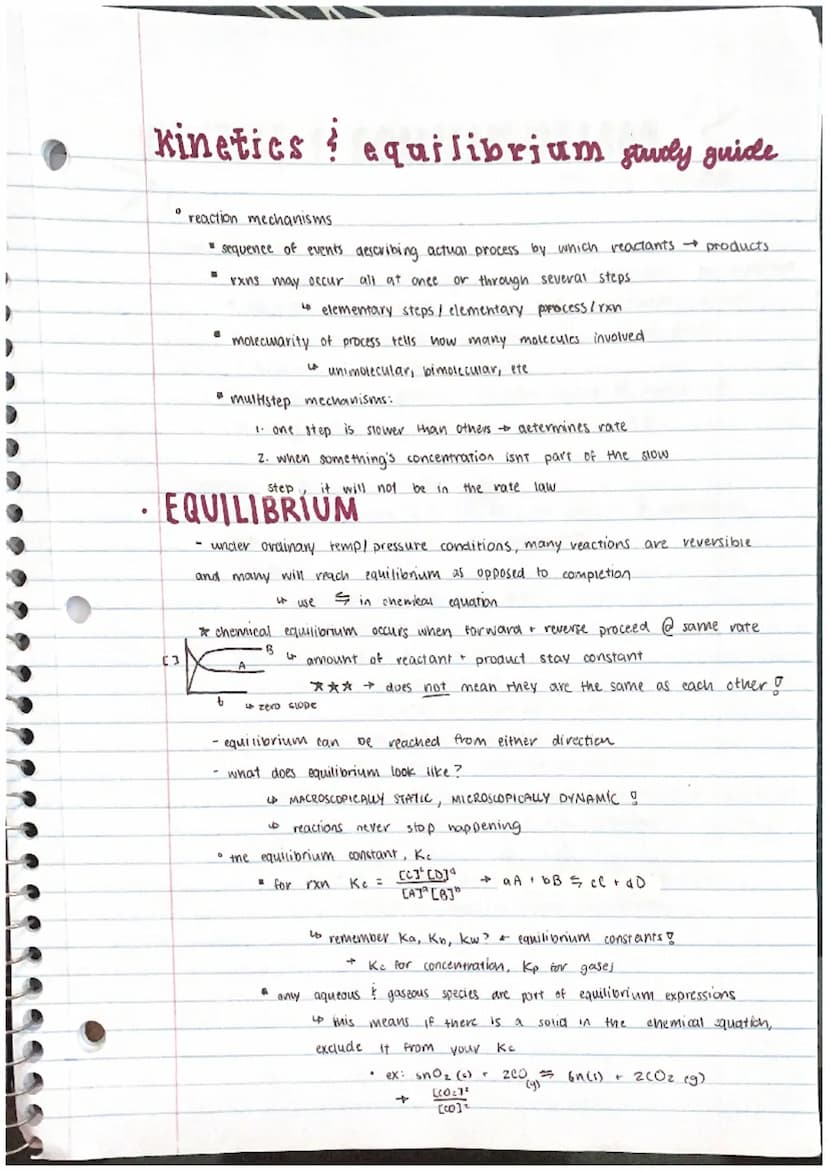 kinetics & equilibrium study guide
° reaction mechanisms
▪ sequence of events describing actual process by which reactants → products
▪ rxns may occur all at once or through several steps
↳ elementary steps / elementary process / rxn
▪ molecularity of process tells how many molecules involved
↳ unimolecular, bimolecular, etc
▪ multistep mechanisms:
1. one step is slower than others → determines rate
2. when something's concentration isnt part of the slow
step, it will not be in the rate law
· EQUILIBRIUM
- under ordinary temp/ pressure conditions, many reactions are reversible
and many will reach equilibrium as opposed to completion
↳ use ⇆ in chemical equation
* chemical equilibrium occurs when forward + reverse proceed @ same rate
[ ] B A t ↳ zero slope
↳ amount of reactant + product stay constant
*** → does not mean they are the same as each other!
- equilibrium can be reached from either direction
- what does equilibrium look like?
↳ MACROSCOPICALLY STATIC, MICROSCOPICALLY DYNAMIC!
↳ reactions never stop happening
° the equilibrium constant, Kc
▪ for rxn Kc = [C]ᶜ[D]ᵈ / [A]ᵃ[B]ᵇ → aA + bB ⇆ cC + dD
↳ remember Ka, Kb, Kw? ← equilibrium constants!
→ Kc for concentration, Kp for gases
▪ only aqueous & gaseous species are part of equilibrium expressions
↳ this means if there is a solid in the chemical equation,
exclude it from your Kc
• ex: SnO2 (s) + 2CO (g) ⇆ Sn(s) + 2CO2 (g)
→ [CO2]² / [CO]²